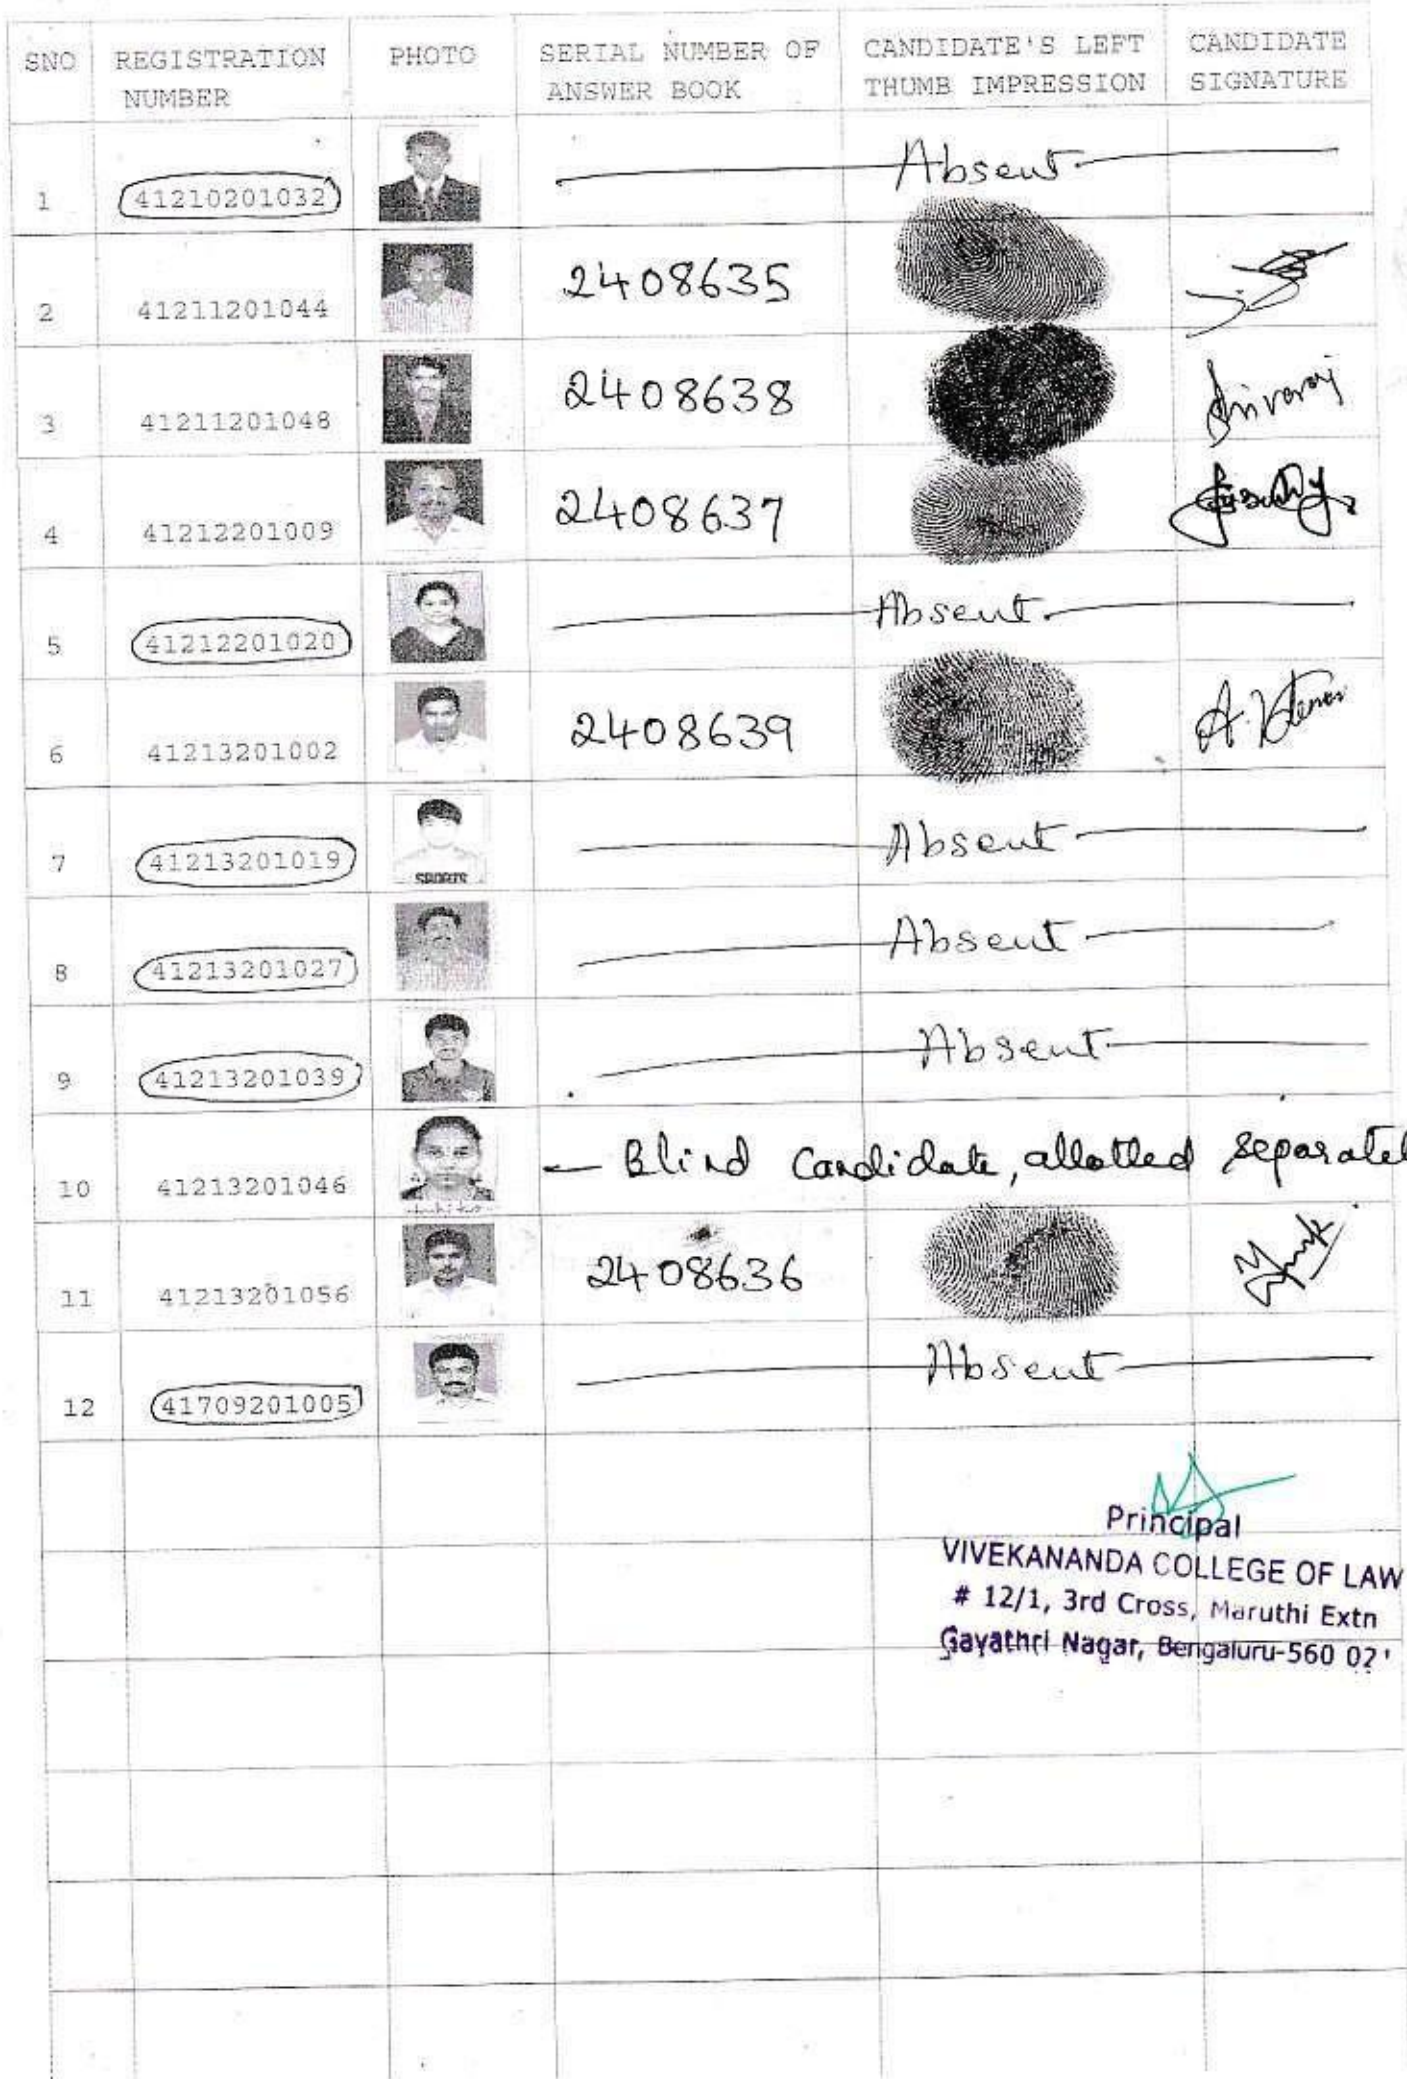 SNO REGISTRATION PHOTO SERIAL NUMBER OF CANDIDATE'S LEFT CANDIDATE
NUMBER ANSWER BOOK THUMB IMPRESSION SIGNATURE
1 41210201032 Absent
2 41211201044 2408635
3 41211201048 2408638
4 41212201009 2408637
5 41212201020 Absent
6 41213201002 2408639
7 41213201019 Absent
SPORTS
8 41213201027 Absent
9 41213201039 Absent
10 41213201046 - Blind Candidate, allotted separatel
11 41213201056 2408636
12 41709201005 Absent
Principal
VIVEKANANDA COLLEGE OF LAW
# 12/1, 3rd Cross, Maruthi Extn
Gayathri Nagar, Bengaluru-560 02